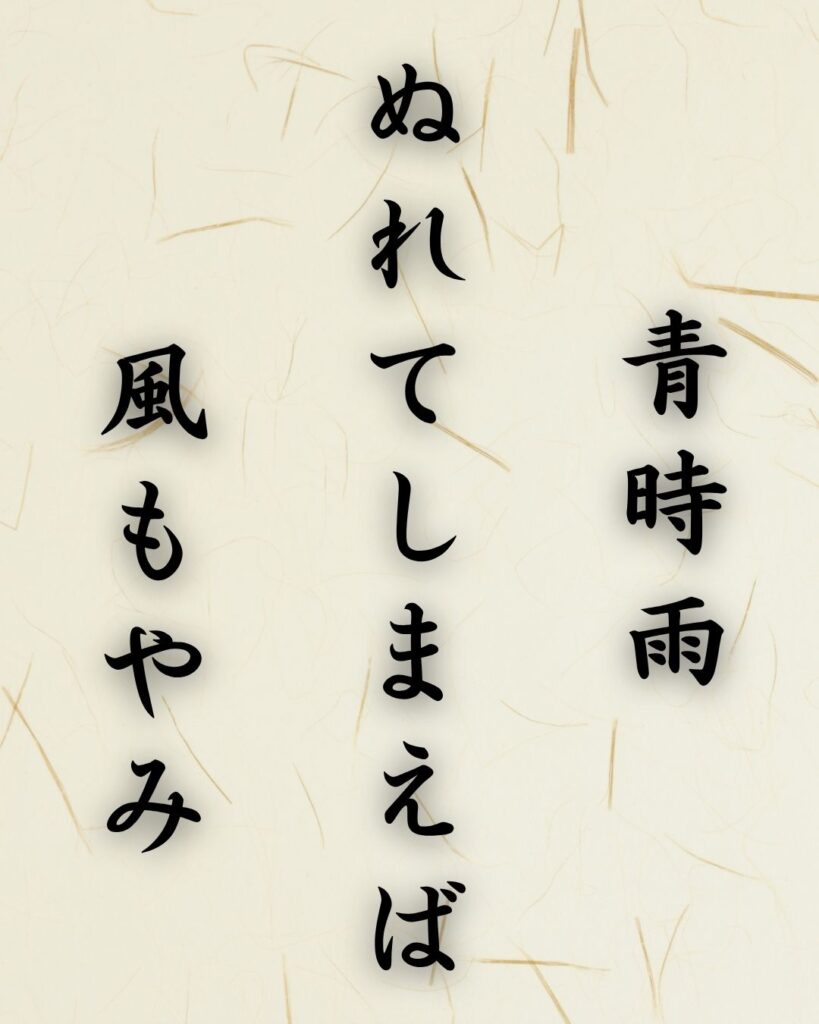 青時雨
ぬれてしまえば
風もやみ